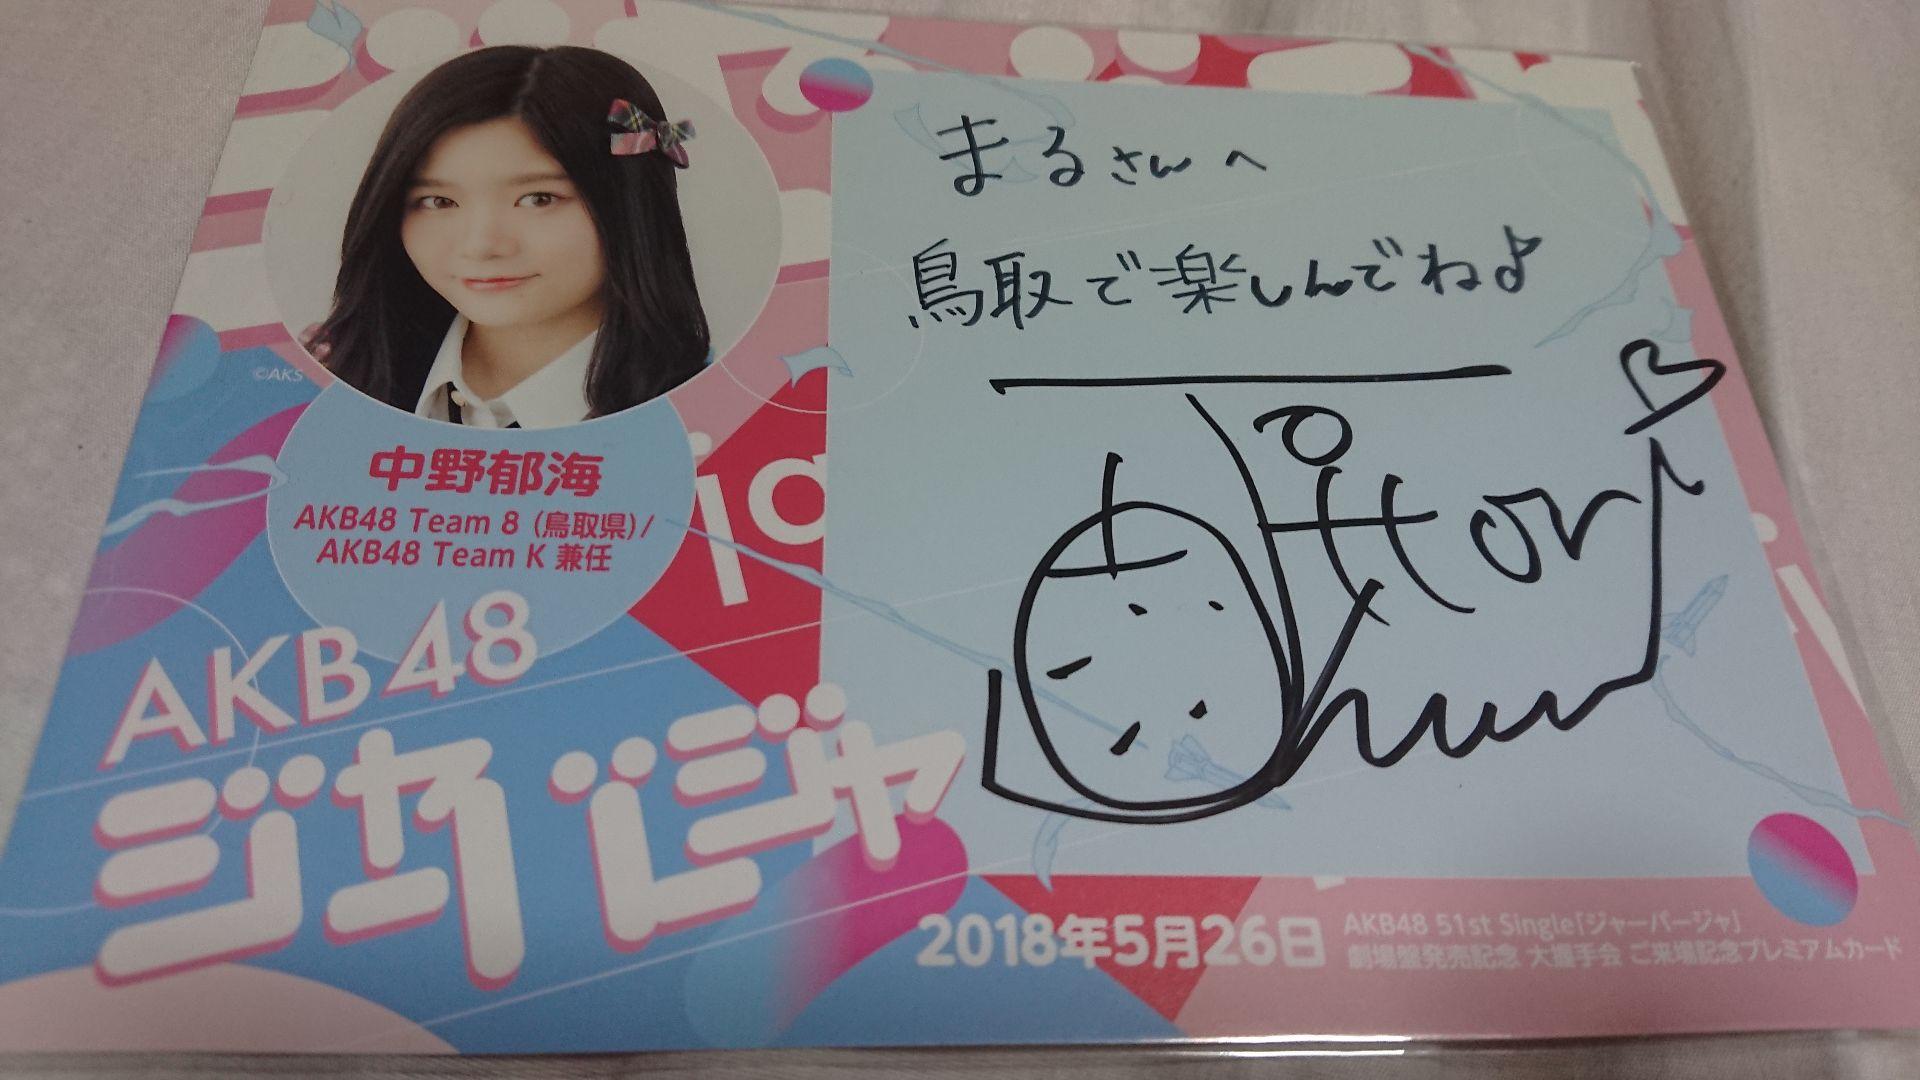 まるさんへ
鳥取で楽しんでね♪
©AKS
中野郁海
AKB48 Team 8 (鳥取県)/
AKB48 Team K 兼任
AKB48
ジャーバージャ
2018年5月26日
AKB48 51st Single「ジャーバージャ」
劇場盤発売記念 大握手会 ご来場記念プレミアムカード